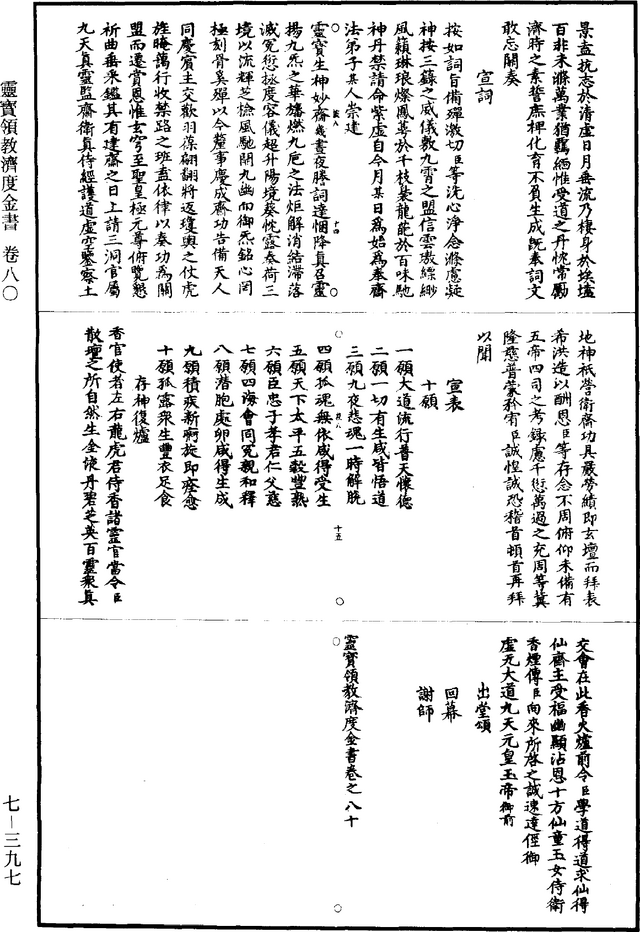 靈寶領教濟度金書 卷八〇
七-三九七
景盍抗志於清虛日月垂流乃棲身於埃壒
百非未滌萬業猶羈緬惟受道之丹忱常勵
濟時之素誓庶裨化育不負生成既奉詞文
敢忘關奏
宣詞
按如詞旨備殫激切臣等洗心淨念滌慮凝
神按三籙之威儀敷九霄之盟信雲璈縹緲
風籟琳琅燦鳳蕚於千枝裊龍葩於百味馳
神丹禁請命紫虛自今月某日為始為奉齋
法弟子某人崇建
靈寶生神妙齋幾晝夜勝詞達悃降真召靈
揚九炁之華旛燃九巵之法炬解消結滯落
滅冤愆拯度容儀超升陽境葵忱露奉荷三
境以流輝芝檢風馳開九幽而御炁銘心罔
極刻骨奚殫以今釐事慶成齋功告備天人
同慶賓主交歡羽葆翩翩將返瓊輿之仗虎
旌晻靄行收禁路之班盍依律以奏功為關
盟而遷賞恩惟玄穹至聖皇極元尊俯覽懇
祈曲垂采鑑其有建齋之日上請三洞官屬
九天真靈監齋衛真侍經護道虛空鑒察土
地神祇營衛齋功具嚴勞績即玄壇而拜表
希洪造以酬恩臣等存念不周俯仰未備有
五帝四司之考錄慮千愆萬過之充周等冀
隆慈普蒙矜宥臣誠惶誠恐稽首頓首再拜
以聞
宣表
十願
一願大道流行普天懷德
二願一切有生咸皆悟道
三願九夜悲魂一時解脫
四願孤魂無依咸得受生
五願天下太平五穀豐熟
六願臣忠子孝君仁父慈
七願四海會同冤親和釋
八願潛胞處卵咸得生成
九願積疾新痾旋即痊愈
十願孤露眾生豐衣足食
存神復爐
香官使者左右龍虎君侍香諸靈官當令臣
散壇之所自然生金液丹碧芝英百靈眾真
交會在此香火爐前令臣學道得道求仙得
仙齋主受福幽顯沾恩十方仙童玉女侍衛
香煙傳臣向來所啓之誠速達徑御
虛无大道九天元皇玉帝御前
出堂頌
回幕
謝師
靈寶領教濟度金書卷之八十